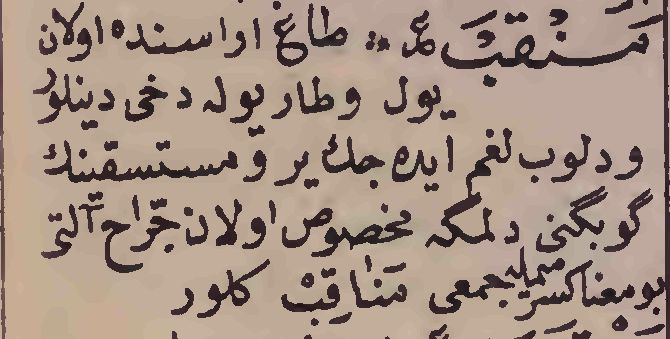 مَنْقَبْ ع طاغ اراسنده اولان
يول و طار يوله دخى دينلور
و دلوب لغم ايده جك ير و مستسقينك
گوبگنى دلمكه مخصوص اولان جرّاح آلتى
بو معنا كسر ميمله جمعى مَنَاقِبْ كلور